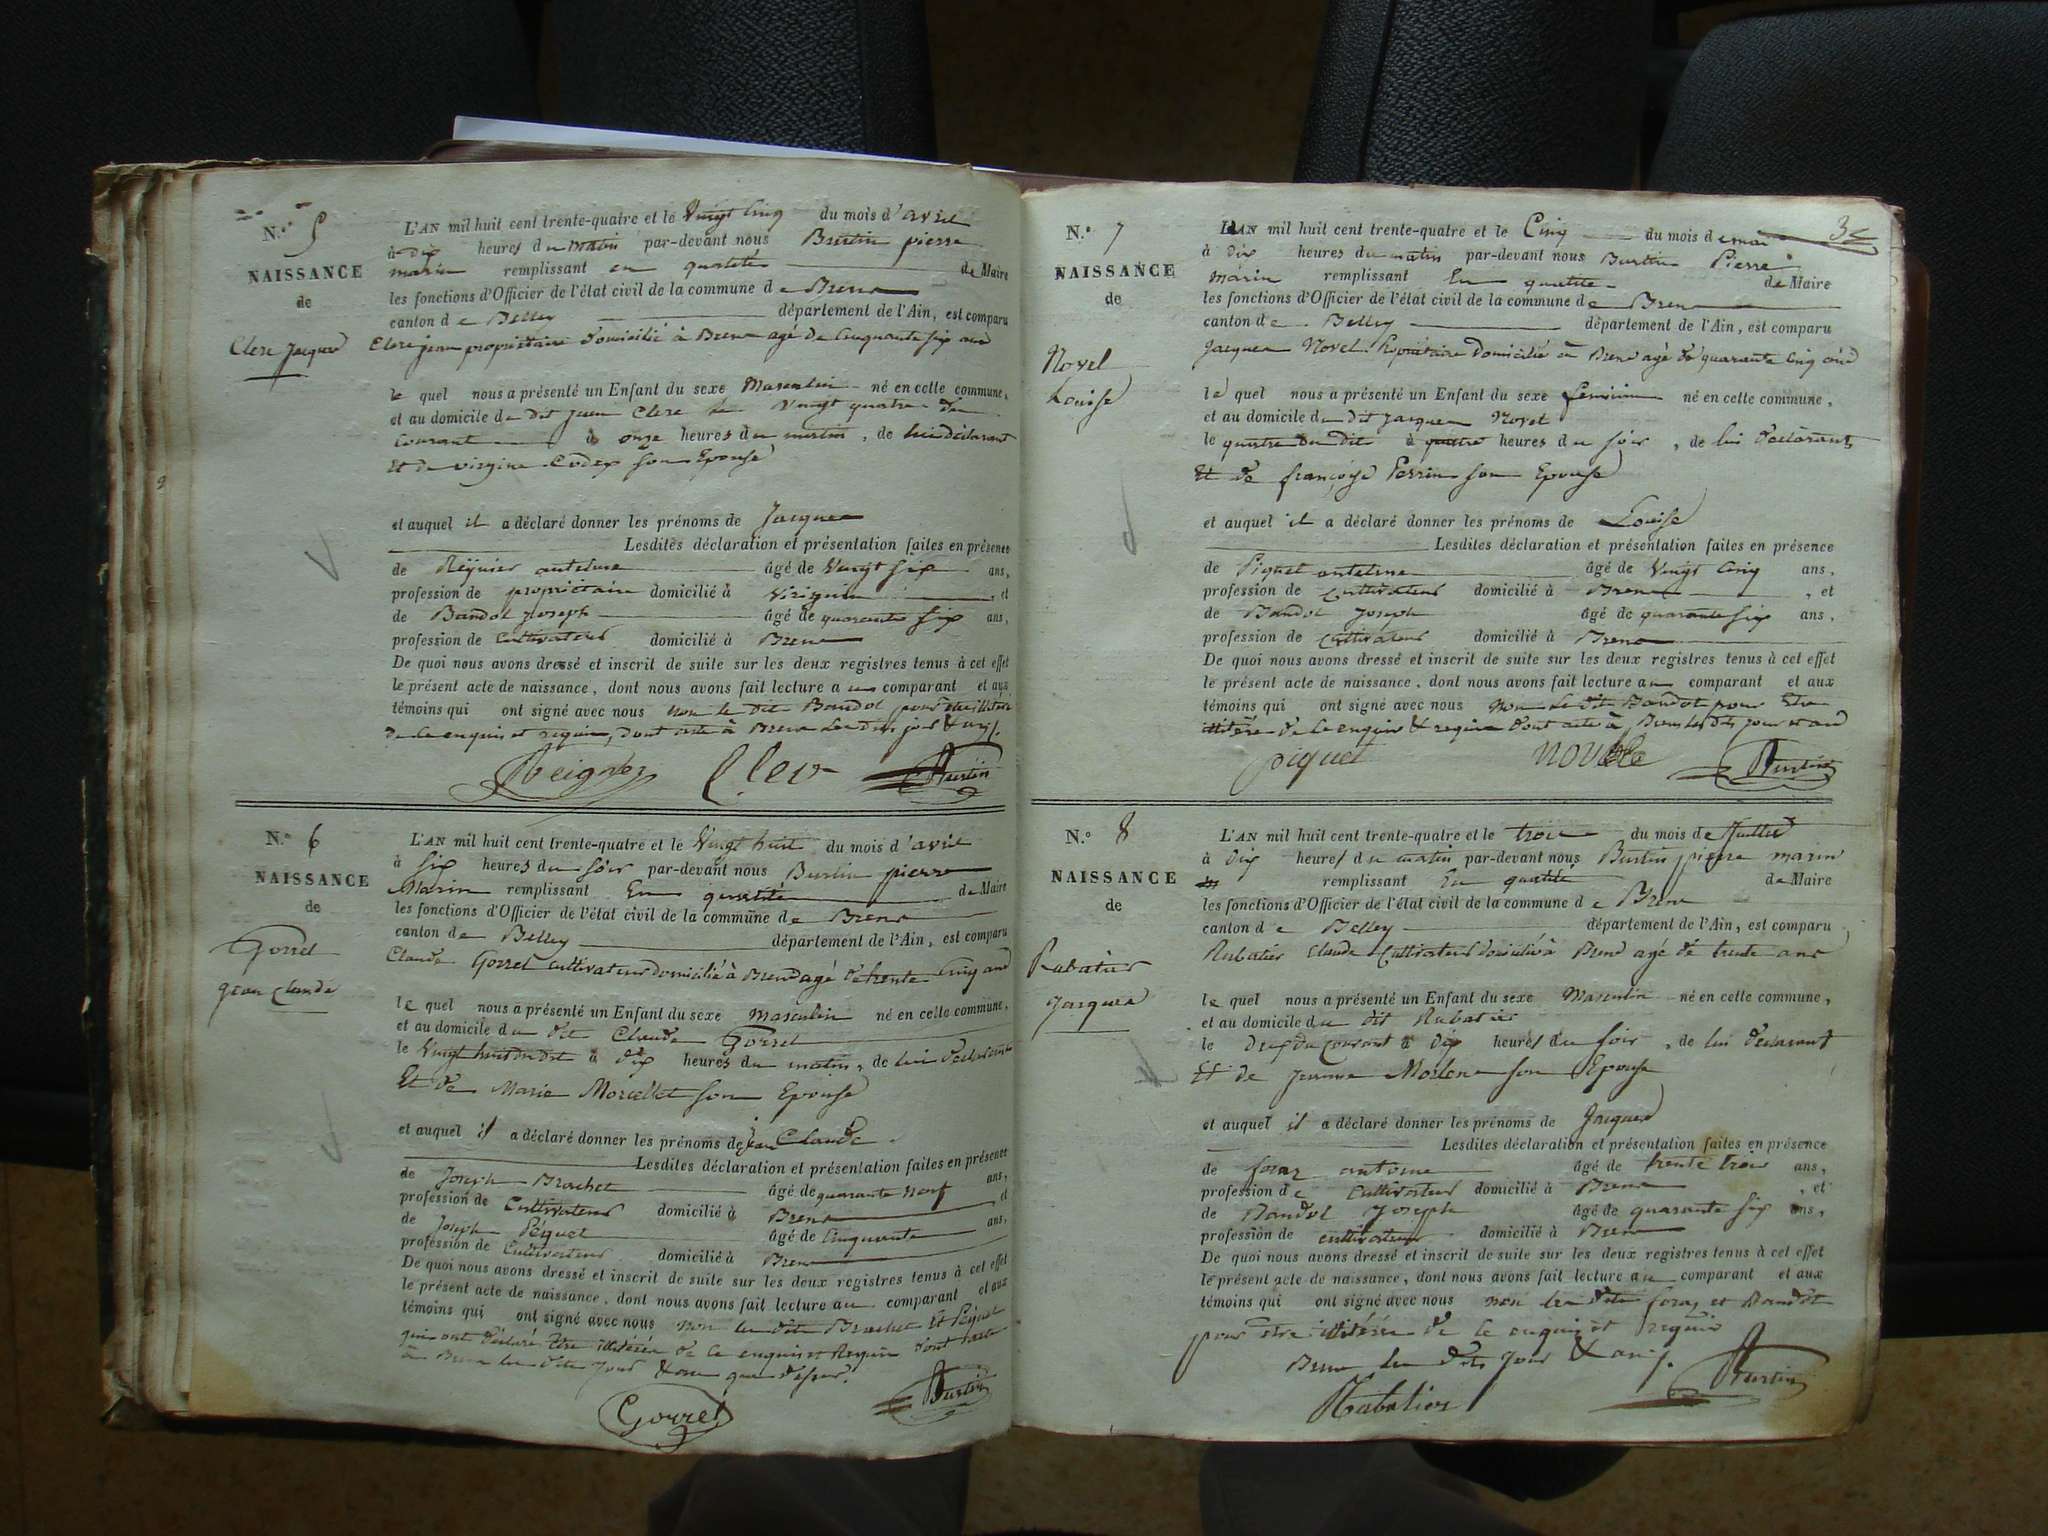 N.º 5
NAISSANCE
de
Clerc Jacques
L'AN mil huit cent trente-quatre et le Vingt Cinq du mois d'avril
à dix heures du matin par-devant nous Burtin pierre
marin remplissant en qualité de Maire
les fonctions d'Officier de l'état civil de la commune de Brens
canton de Belley département de l'Ain, est comparu
Clerc jean propriétaire domicilié à Brens agé de Cinquante six ans
le quel nous a présenté un Enfant du sexe Masculin né en cette commune,
et au domicile du dit jean Clerc le Vingt quatre du
Courant à onze heures du matin, de lui déclarant
Et de virginie son Epouse
et auquel il a déclaré donner les prénoms de Jacques
Lesdites déclaration et présentation faites en présence
de Régnier antelme âgé de Vingt six ans,
profession de propriétaire domicilié à Virignin, et
de Bandol Joseph âgé de quarante six ans,
profession de Cultivateur domicilié à Brens
De quoi nous avons dressé et inscrit de suite sur les deux registres tenus à cet effet
le présent acte de naissance, dont nous avons fait lecture au comparant et aux
témoins qui ont signé avec nous non le dit Bandol pour être illitéré
de ce enquis et requis, dont acte à Brens les dits jour & an.
Reignier Clerc Burtin
N.º 6
NAISSANCE
de
Gorrel
jean Claude
L'AN mil huit cent trente-quatre et le Vingt huit du mois d'avril
à six heures du soir par-devant nous Burtin pierre
Marin remplissant En qualité de Maire
les fonctions d'Officier de l'état civil de la commune de Brens
canton de Belley département de l'Ain, est comparu
Claude Gorrel cultivateur domicilié à Brens agé de trente Cinq ans
le quel nous a présenté un Enfant du sexe masculin né en cette commune,
et au domicile du dit Claude Gorrel
le Vingt huit du dit à dix heures du matin, de lui déclarant
Et de Marie Morcellet son Epouse
et auquel il a déclaré donner les prénoms de jean Claude
Lesdites déclaration et présentation faites en présence
de Joseph Brachet âgé de quarante neuf ans,
profession de Cultivateur domicilié à Brens et
de Joseph Péquet âgé de Cinquante ans,
profession de Cultivateur domicilié à Brens
De quoi nous avons dressé et inscrit de suite sur les deux registres tenus à cet effet
le présent acte de naissance, dont nous avons fait lecture au comparant et aux
témoins qui ont signé avec nous non les dits Brachet et Péquet
qui ont déclaré être illitérés de ce enquis et Requis dont acte
à Brens les dits jour & an que dessus.
Gorrel Burtin
3e
N.º 7
NAISSANCE
de
Novel
Louise
L'AN mil huit cent trente-quatre et le Cinq du mois de mai
à dix heures du matin par-devant nous Burtin Pierre
Marin remplissant En qualité de Maire
les fonctions d'Officier de l'état civil de la commune de Brens
canton de Belley département de l'Ain, est comparu
Jacques Novel Propriétaire domicilié à Brens agé de quarante Cinq ans
le quel nous a présenté un Enfant du sexe féminin né en cette commune,
et au domicile du dit Jacques Novel
le quatre du dit à quatre heures du soir, de lui déclarant
Et de françoise Perrin son Epouse
et auquel il a déclaré donner les prénoms de Louise
Lesdites déclaration et présentation faites en présence
de Piquet antelme âgé de Vingt Cinq ans,
profession de Cultivateur domicilié à Brens, et
de Bandol Joseph âgé de quarante six ans,
profession de Cultivateur domicilié à Brens
De quoi nous avons dressé et inscrit de suite sur les deux registres tenus à cet effet
le présent acte de naissance, dont nous avons fait lecture au comparant et aux
témoins qui ont signé avec nous non le dit Bandol pour Etre
illitéré de ce enquis & requis dont acte à Brens les dits jour et an
piquet novel Burtin
N.º 8
NAISSANCE
de
Rabatier
Jacques
L'AN mil huit cent trente-quatre et le trois du mois de Juillet
à dix heures du matin par-devant nous Burtin pierre marin
remplissant En qualité de Maire
les fonctions d'Officier de l'état civil de la commune de Brens
canton de Belley département de l'Ain, est comparu
Rabatier Claude Cultivateur domicilié à Brens agé de trente ans
le quel nous a présenté un Enfant du sexe Masculin né en cette commune,
et au domicile du dit Rabatier
le Deux du Courant à dix heures du soir, de lui déclarant
Et de son Epouse
et auquel il a déclaré donner les prénoms de Jacques
Lesdites déclaration et présentation faites en présence
de foraz antoine âgé de trente trois ans,
profession de Cultivateur domicilié à Brens, et
de Bandol Joseph âgé de quarante six ans,
profession de cultivateur domicilié à Brens
De quoi nous avons dressé et inscrit de suite sur les deux registres tenus à cet effet
le présent acte de naissance, dont nous avons fait lecture au comparant et aux
témoins qui ont signé avec nous non les dits foraz et Bandol
pour être illitérés de ce enquis et requis
Brens les dits jour & an.
Rabatier Burtin